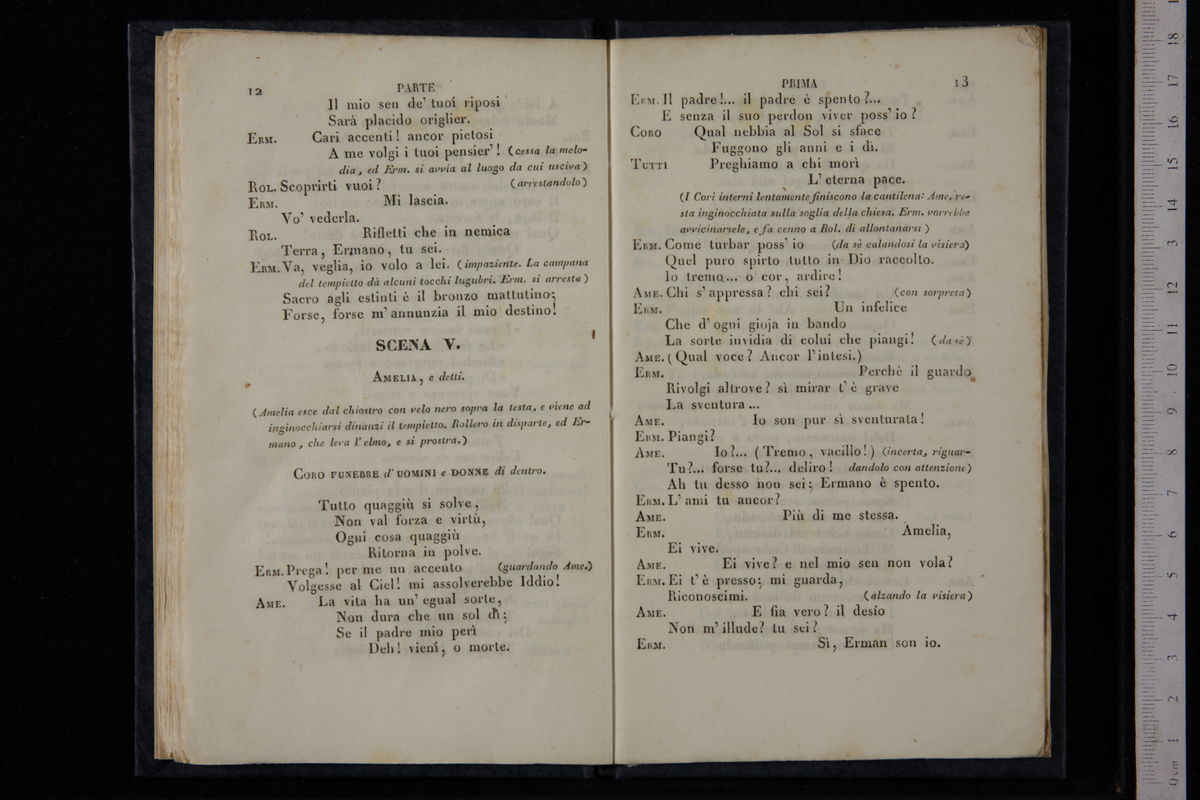 12 PARTE
Il mio sen de' tuoi riposi
Sarà placido origlier.
ERM. Cari accenti! ancor pietosi
A me volgi i tuoi pensier'! (cessa la melo-
dia, ed Erm. si avvia al luogo da cui usciva)
ROL. Scoprirti vuoi? (arrestandolo)
ERM. Mi lascia.
Vo' vederla.
ROL. Rifletti che in nemica
Terra, Ermano, tu sei.
ERM. Va, veglia, io volo a lei. (impaziente. La campana
del tempietto dà alcuni tocchi lugubri. Erm. si arresta)
Sacro agli estinti è il bronzo mattutino;
Forse, forse m'annunzia il mio destino!
SCENA V.
AMELIA, e detti.
(Amelia esce dal chiostro con velo nero sopra la testa, e viene ad
inginocchiarsi dinanzi il tempietto. Rollero in disparte, ed Er-
mano, che leva l'elmo, e si prostra.)
CORO FUNEBRE d'UOMINI e DONNE di dentro.
Tutto quaggiù si solve,
Non val forza e virtù,
Ogni cosa quaggiù
Ritorna in polve.
ERM. Prega! per me un accento (guardando Ame.)
Volgesse al Ciel! mi assolverebbe Iddio!
AME. La vita ha un' egual sorte,
Non dura che un sol dì;
Se il padre mio perì
Deh! vieni, o morte.
PRIMA 13
ERM. Il padre!... il padre è spento?...
E senza il suo perdon viver poss' io?
CORO Qual nebbia al Sol si sface
Fuggono gli anni e i dì.
TUTTI Preghiamo a chi morì
L'eterna pace.
(I Cori interni lentamente finiscono la cantilena: Ame. re-
sta inginocchiata sulla soglia della chiesa. Erm. vorrebbe
avvicinarsele, e fa cenno a Rol. di allontanarsi)
ERM. Come turbar poss' io (da sè calandosi la visiera)
Quel puro spirto tutto in Dio raccolto.
Io tremo... o cor, ardire!
AME. Chi s'appressa? chi sei? (con sorpresa)
ERM. Un infelice
Che d'ogni gioja in bando
La sorte invidia di colui che piangi! (da sè)
AME. (Qual voce? Ancor l'intesi.)
ERM. Perchè il guardo
Rivolgi altrove? sì mirar t'è grave
La sventura...
AME. Io son pur sì sventurata!
ERM. Piangi?
AME. Io?... (Tremo, vacillo!) (incerta, riguar-
Tu?... forse tu?... deliro! dandolo con attenzione)
Ah tu desso non sei; Ermano è spento.
ERM. L'ami tu ancor?
AME. Più di me stessa.
ERM. Amelia,
Ei vive.
AME. Ei vive? e nel mio sen non vola?
ERM. Ei t'è presso; mi guarda,
Riconoscimi. (alzando la visiera)
AME. E fia vero? il desío
Non m'illude? tu sei?
ERM. Sì, Erman son io.
0 cm 1 2 3 4 5 6 7 8 9 10 11 12 13 14 15 16 17 18